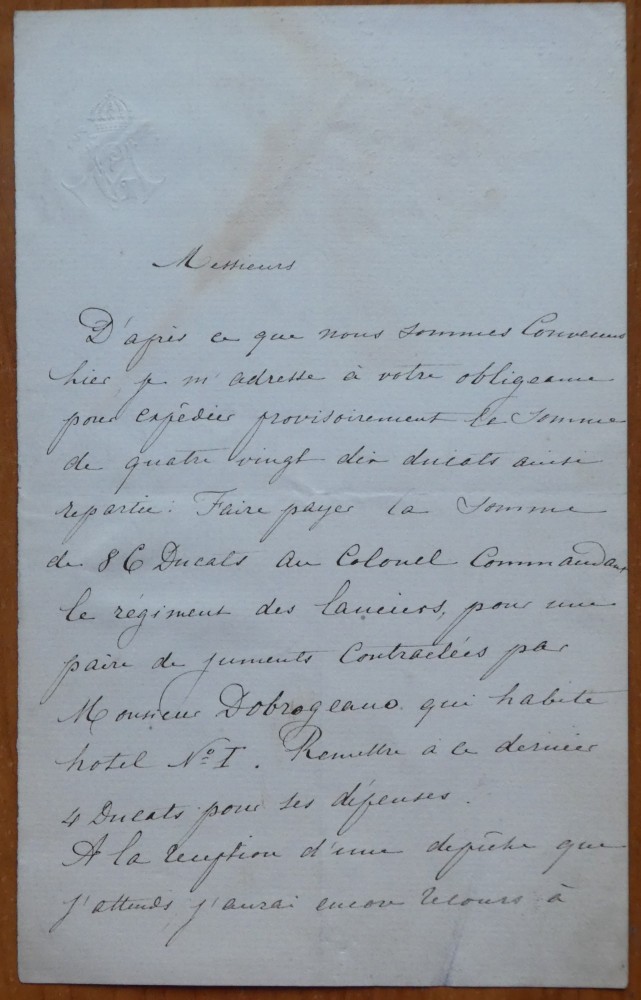 Messieurs
D'après ce que nous sommes Convenus
hier je m'adresse à votre obligeance
pour expédier provisoirement la somme
de quatre vingt dix ducats ainsi
repartie: Faire payer la somme
de 86 Ducats au Colonel Commandant
le régiment des lanciers, pour une
paire de juments Contractées par
Monsieur Dobrogeano qui habite
hotel No. I. Remettre à ce dernier
4 Ducats pour ses dépenses.
A la reception d'une depêche que
j'attends, j'aurai encore recours à